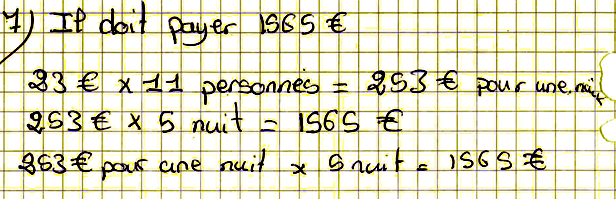 7) Il doit payer 1565 €
23 € x 11 personnes = 253 € pour une nuit
253 € x 5 nuit = 1565 €
253 € pour une nuit x 5 nuit = 1565 €